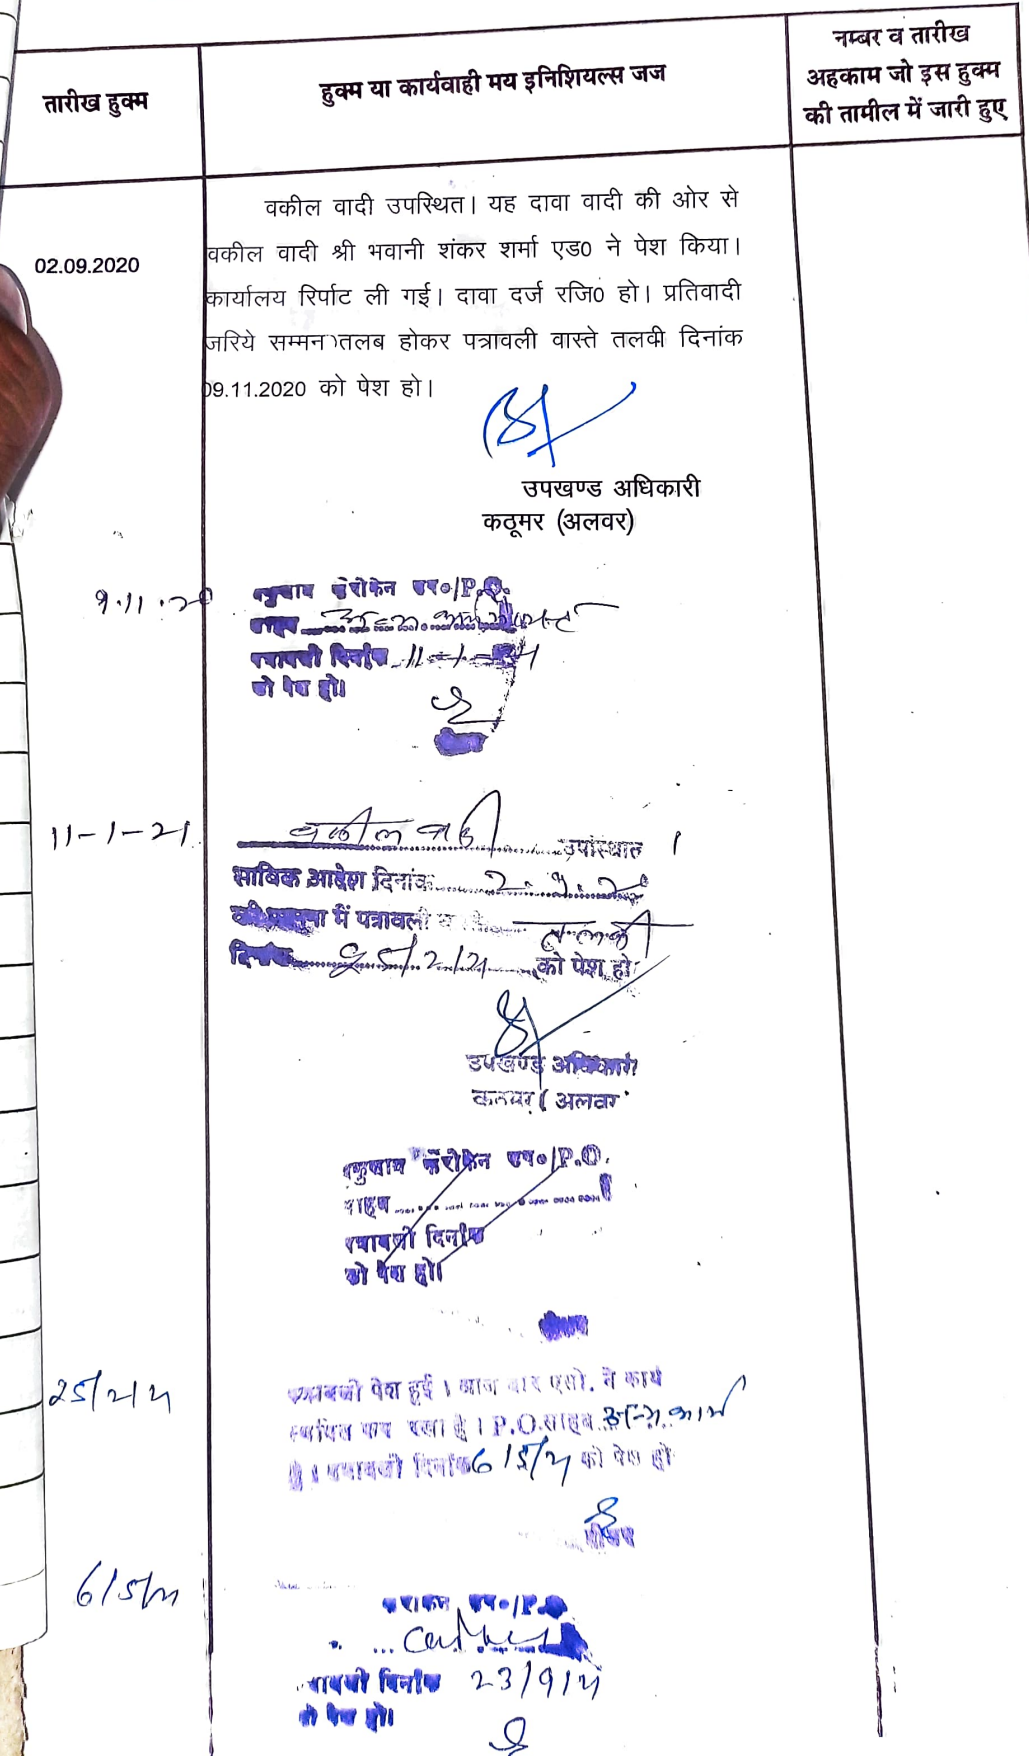 तारीख हुक्म
हुक्म या कार्यवाही मय इनिशियल्स जज
नम्बर व तारीख
अहकाम जो इस हुक्म
की तामील में जारी हुए
02.09.2020
वकील वादी उपस्थित। यह दावा वादी की ओर से
वकील वादी श्री भवानी शंकर शर्मा एड0 ने पेश किया।
कार्यालय रिर्पाट ली गई। दावा दर्ज रजि0 हो। प्रतिवादी
जरिये सम्मन तलब होकर पत्रावली वास्ते तलवी दिनांक
09.11.2020 को पेश हो।
उपखण्ड अधिकारी
कठूमर (अलवर)
9.11.20
P.O.
दिनांक 11-1-21
को पेश हो।
11-1-21
वकील वादी उपस्थित
साबिक आदेश दिनांक 2.9.20
में पत्रावली
तलवी
दिनांक 25/2/21 को पेश हो
उपखण्ड अधिकारी
(अलवर
P.O.
साहब
पत्रावली दिनांक
को पेश हो।
25/2/21
पत्रावली पेश हुई। आज बार एसो. ने कार्य
स्थगित कर रखा है। P.O. साहब अन्य कार्य
है। पत्रावली दिनांक 6/5/21 को पेश हो
रीडर
6/5/21
पत्रावली दिनांक 23/9/21
को पेश हो।